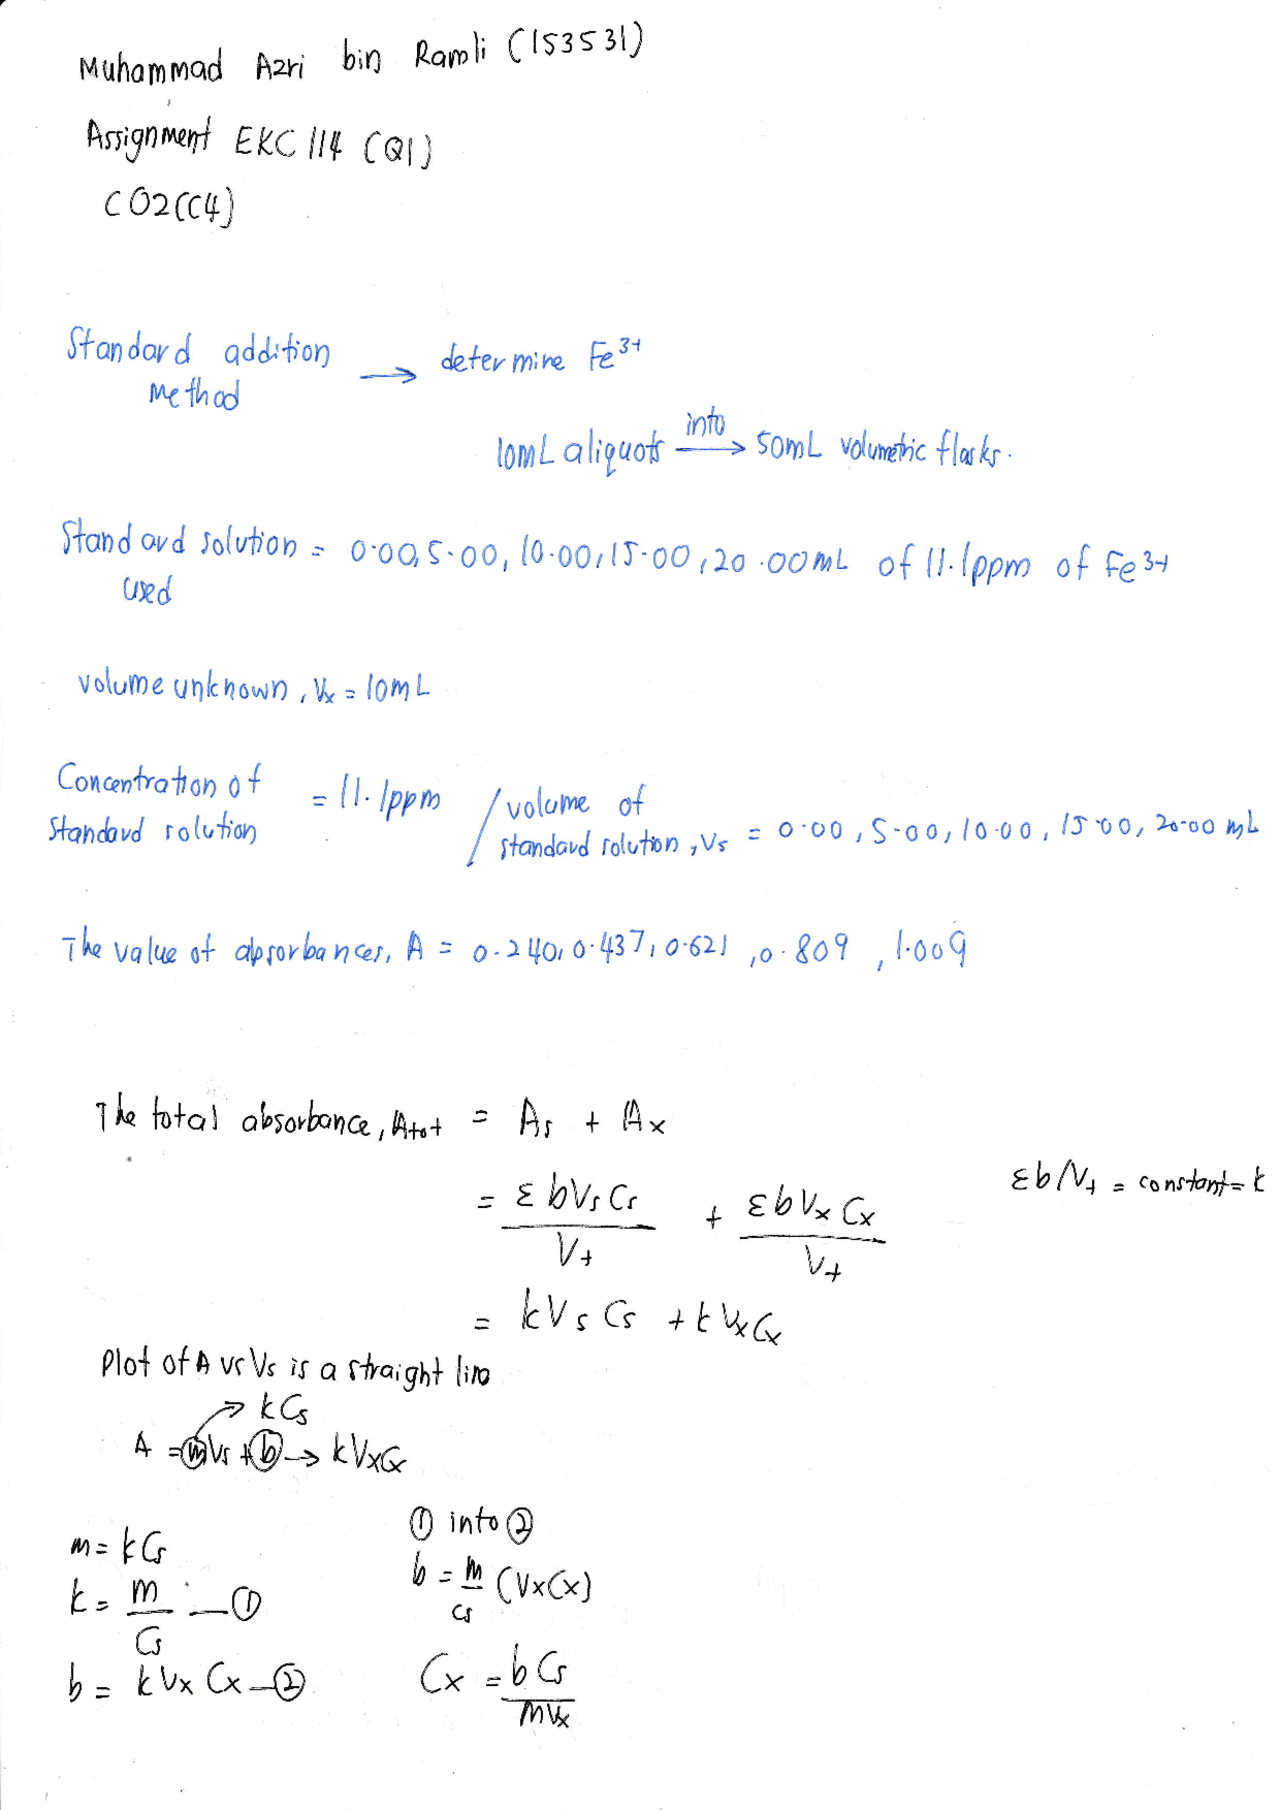 Muhammad Azri bin Ramli (153531)
Assignment EKC 114 (Q1)
CO2(C4)
Standard addition method → determine Fe³⁺
10mL aliquots into → 50mL volumetric flasks.
Standard solution used = 0.00, 5.00, 10.00, 15.00, 20.00mL of 11.1ppm of Fe³⁺
volume unknown, Vx = 10mL
Concentration of standard solution = 11.1ppm / volume of standard solution, Vs = 0.00, 5.00, 10.00, 15.00, 20.00 mL
The value of absorbances, A = 0.240, 0.437, 0.621, 0.809, 1.009
The total absorbance, Atot = As + Ax
εb/Vt = constant = k
= εbVsCs/Vt + εbVxCx/Vt
= kVsCs + kVxCx
Plot of A vs Vs is a straight line
→ kCs
A = mVs + b → kVxCx
m = kCs
k = m/Cs — ①
b = kVxCx — ②
① into ②
b = m/Cs (VxCx)
Cx = bCs/mVx